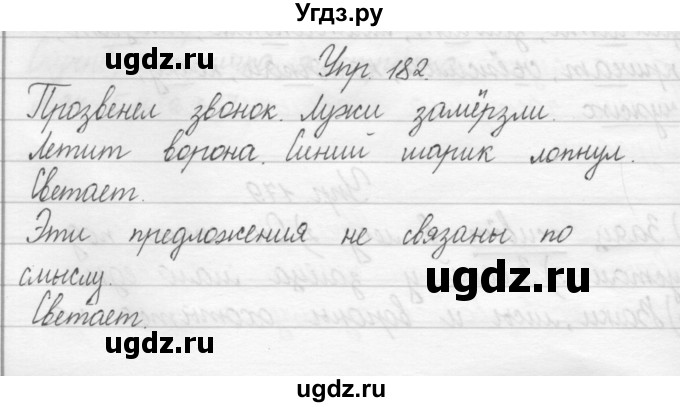 Угдз.ру
ugdz.ru
ugdz.ru
Упр. 182.
Прозвенел звонок. Лужи замёрзли.
Летит ворона. Синий шарик лопнул.
Светает.
Эти предложения не связаны по
смыслу.
ugdz.ru
Светает.
ugdz.ru
ugdz.ru